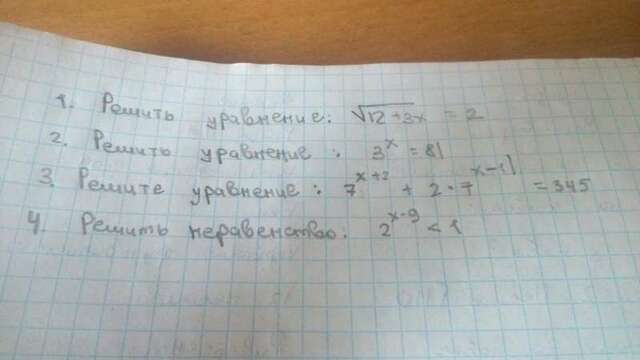 1. Решить уравнение: √12+3x = 2
2. Решить уравнение: 3^x = 81
3. Решите уравнение: 7^x+2 + 2·7^x-1 = 345
4. Решить неравенство: 2^x-9 < 1